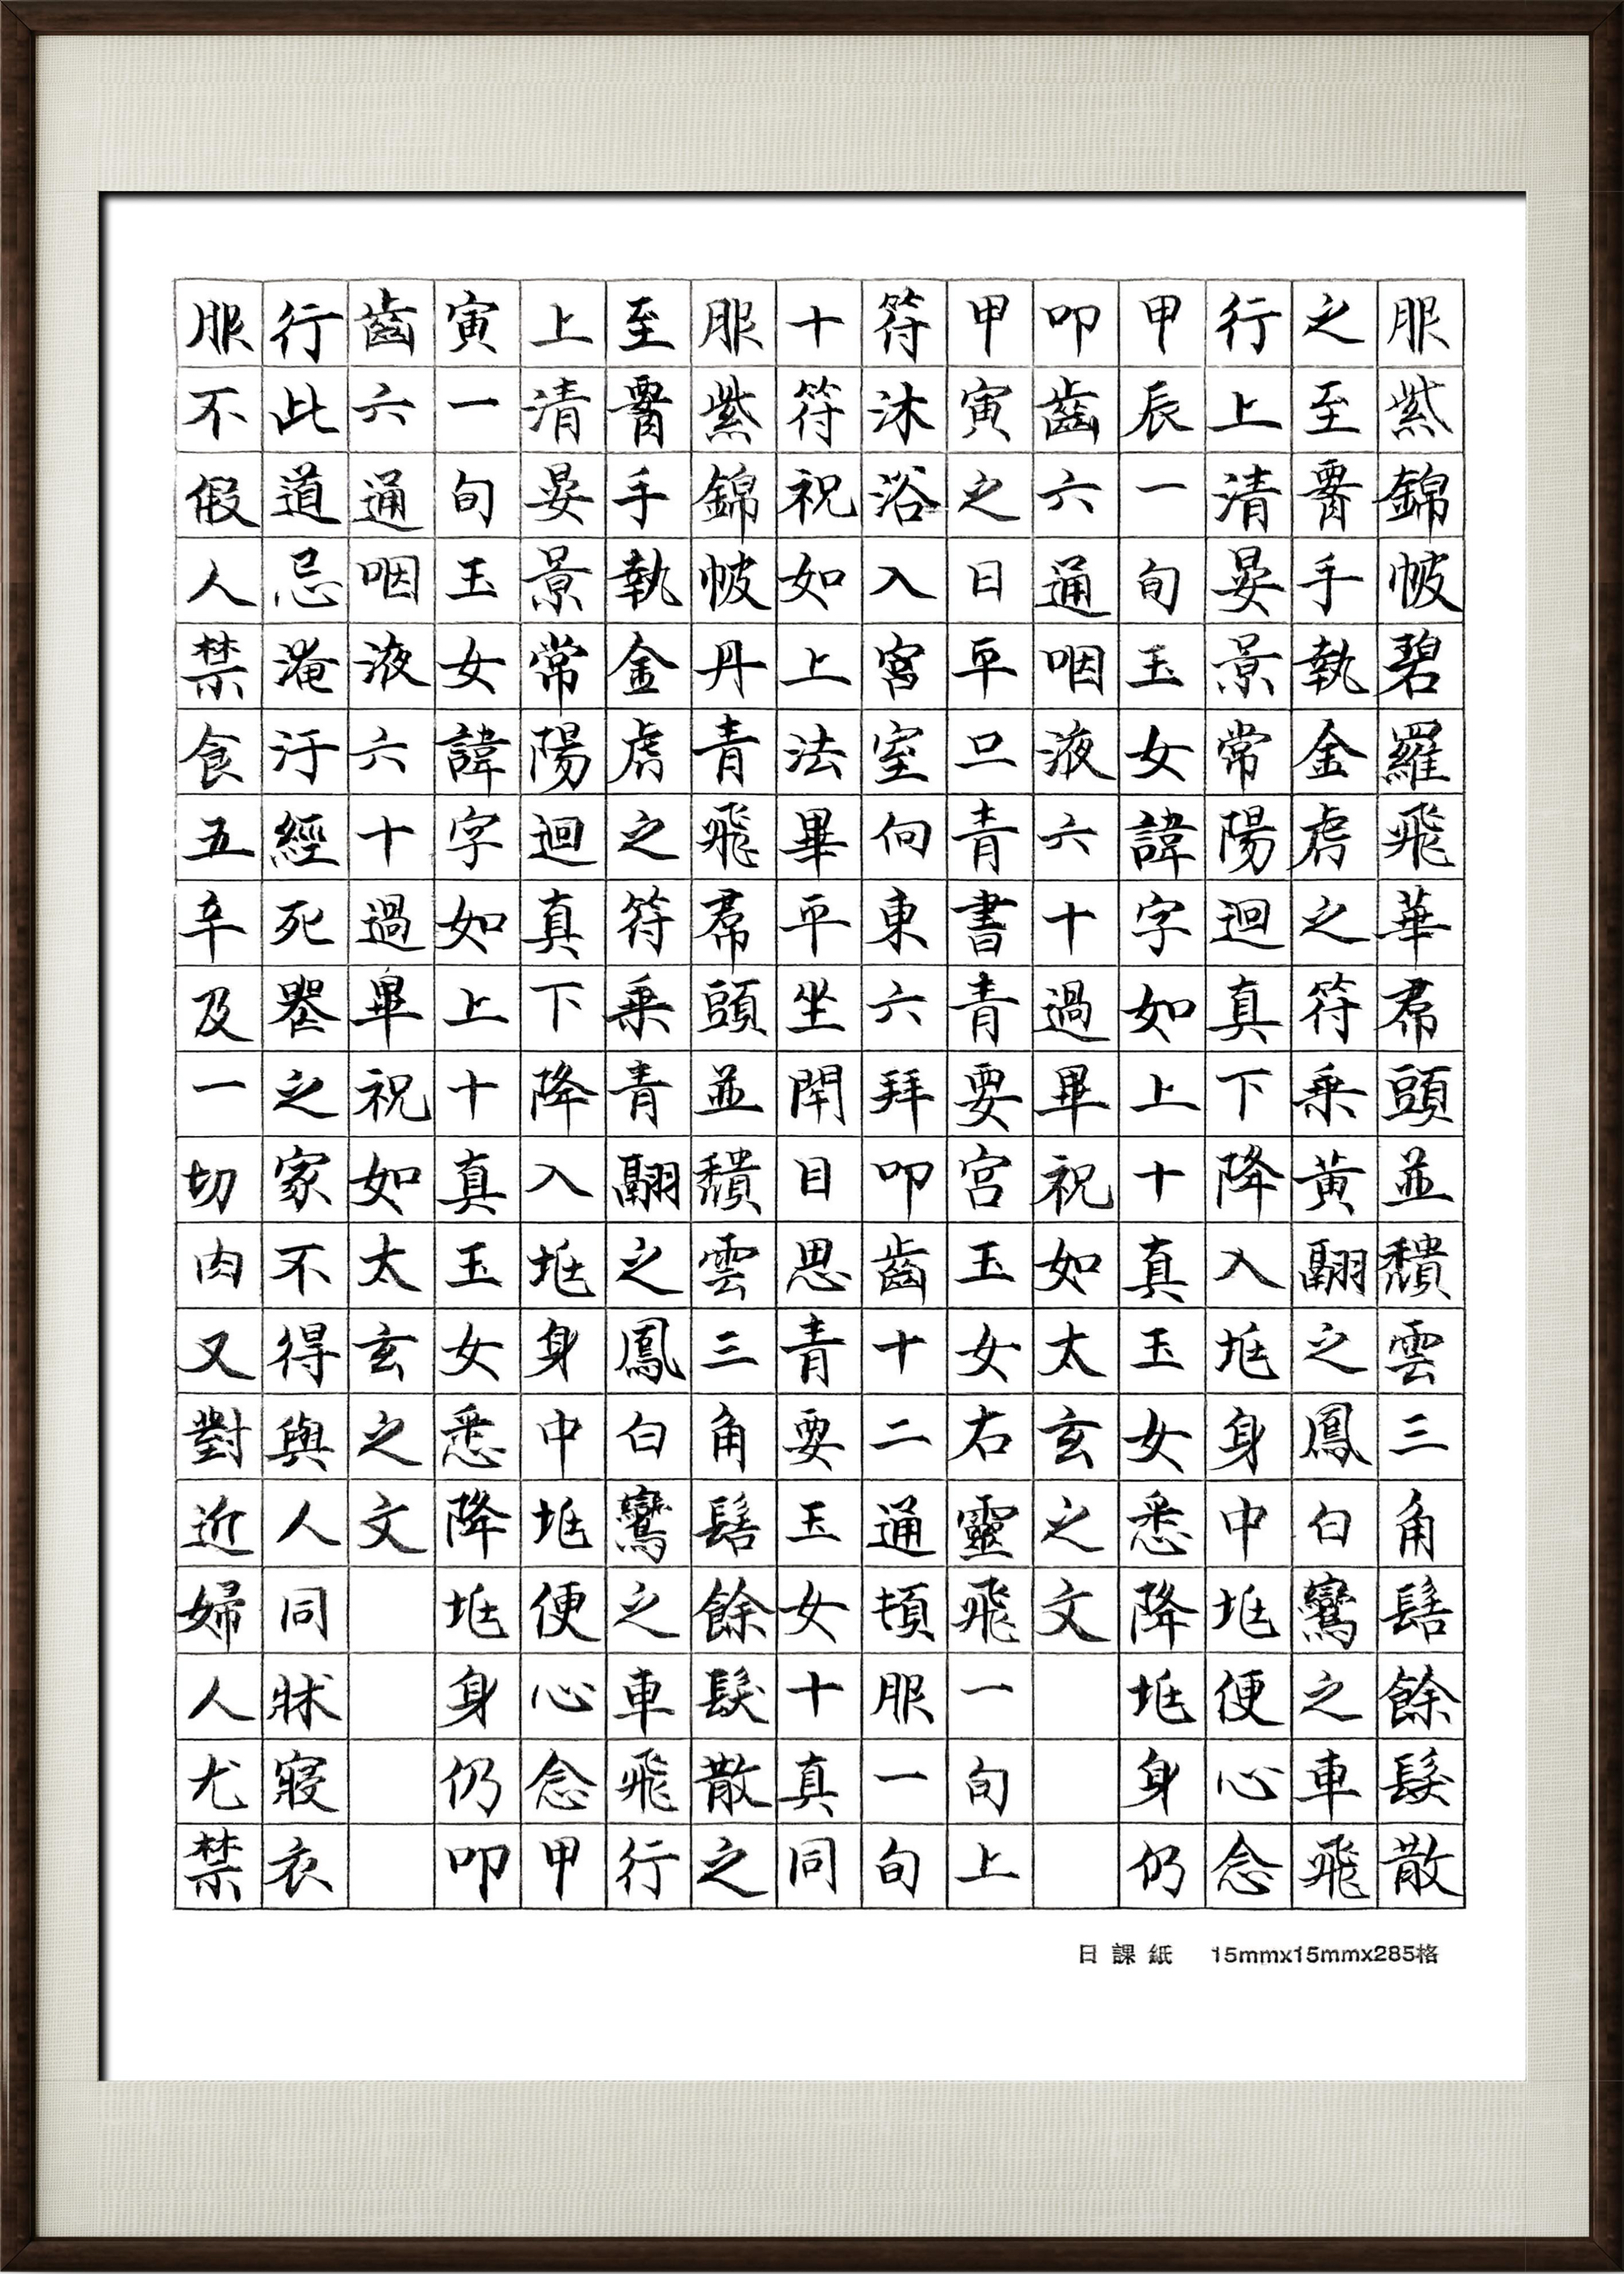 服紫錦帔碧羅飛華帬頭並穨雲三角髻餘髮散
之至�write手執金虎之符乗黃翮之鳳白鸞之車飛
行上清晏景常陽迴真下降入㘴身中㘴便心念
甲辰一旬玉女諱字如上十真玉女悉降㘴身仍
叩齒六通咽液六十過畢祝如太玄之文
甲寅之日平旦青書青要宮玉女右靈飛一旬上
符沐浴入宮室向東六拜叩齒十二通頓服一旬
十符祝如上法畢平坐閇目思青要玉女十真同
服紫錦帔丹青飛帬頭並穨雲三角髻餘髮散之
至手執金虎之符乗青翮之鳳白鸞之車飛行
上清晏景常陽迴真下降入㘴身中㘴便心念甲
寅一旬玉女諱字如上十真玉女悉降㘴身仍叩
齒六通咽液六十過畢祝如太玄之文
行此道忌淹汙經死之家不得與人同牀寝衣
服不假人禁食五辛及一切肉又對近婦人尤禁
日課紙 15mmx15mmx285格